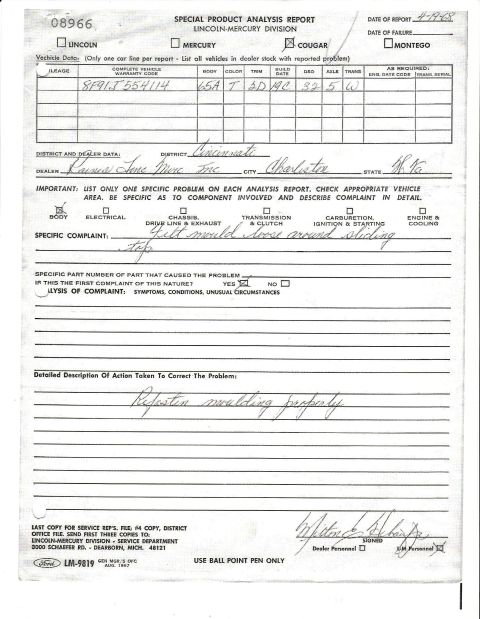 08966
SPECIAL PRODUCT ANALYSIS REPORT
LINCOLN-MERCURY DIVISION
DATE OF REPORT 4-19-68
DATE OF FAILURE
LINCOLN MERCURY COUGAR MONTEGO
Vechicle Data: (Only one car line per report - List all vehicles in dealer stock with reported problem)
ILEAGE COMPLETE VEHICLE WARRANTY CODE BODY COLOR TRIM BUILD DATE DSO AXLE TRANS AS REQUIRED: ENG. DATE CODE TRANS. SERIAL
8F91J554114 65A T 19C 32 5 W
DISTRICT AND DEALER DATA: DISTRICT Cincinnati
DEALER Linc Merc Inc CITY Charleston STATE W Va
IMPORTANT: LIST ONLY ONE SPECIFIC PROBLEM ON EACH ANALYSIS REPORT. CHECK APPROPRIATE VEHICLE
AREA. BE SPECIFIC AS TO COMPONENT INVOLVED AND DESCRIBE COMPLAINT IN DETAIL.
BODY ELECTRICAL CHASSIS, DRIVE LINE & EXHAUST TRANSMISSION & CLUTCH CARBURETION, IGNITION & STARTING ENGINE & COOLING
SPECIFIC COMPLAINT: Felt mould loose around sliding
top
SPECIFIC PART NUMBER OF PART THAT CAUSED THE PROBLEM
IF THIS THE FIRST COMPLAINT OF THIS NATURE? YES NO
ALYSIS OF COMPLAINT: SYMPTOMS, CONDITIONS, UNUSUAL CIRCUMSTANCES
Detailed Description Of Action Taken To Correct The Problem:
Refasten moulding properly
LAST COPY FOR SERVICE REP'S. FILE; #4 COPY, DISTRICT
OFFICE FILE. SEND FIRST THREE COPIES TO:
LINCOLN-MERCURY DIVISION - SERVICE DEPARTMENT
3000 SCHAEFER RD. - DEARBORN, MICH. 48121
Milton
SIGNED
Dealer Personnel LM Personnel
Ford LM-9819 GEN MGR'S OFC AUG. 1967
USE BALL POINT PEN ONLY